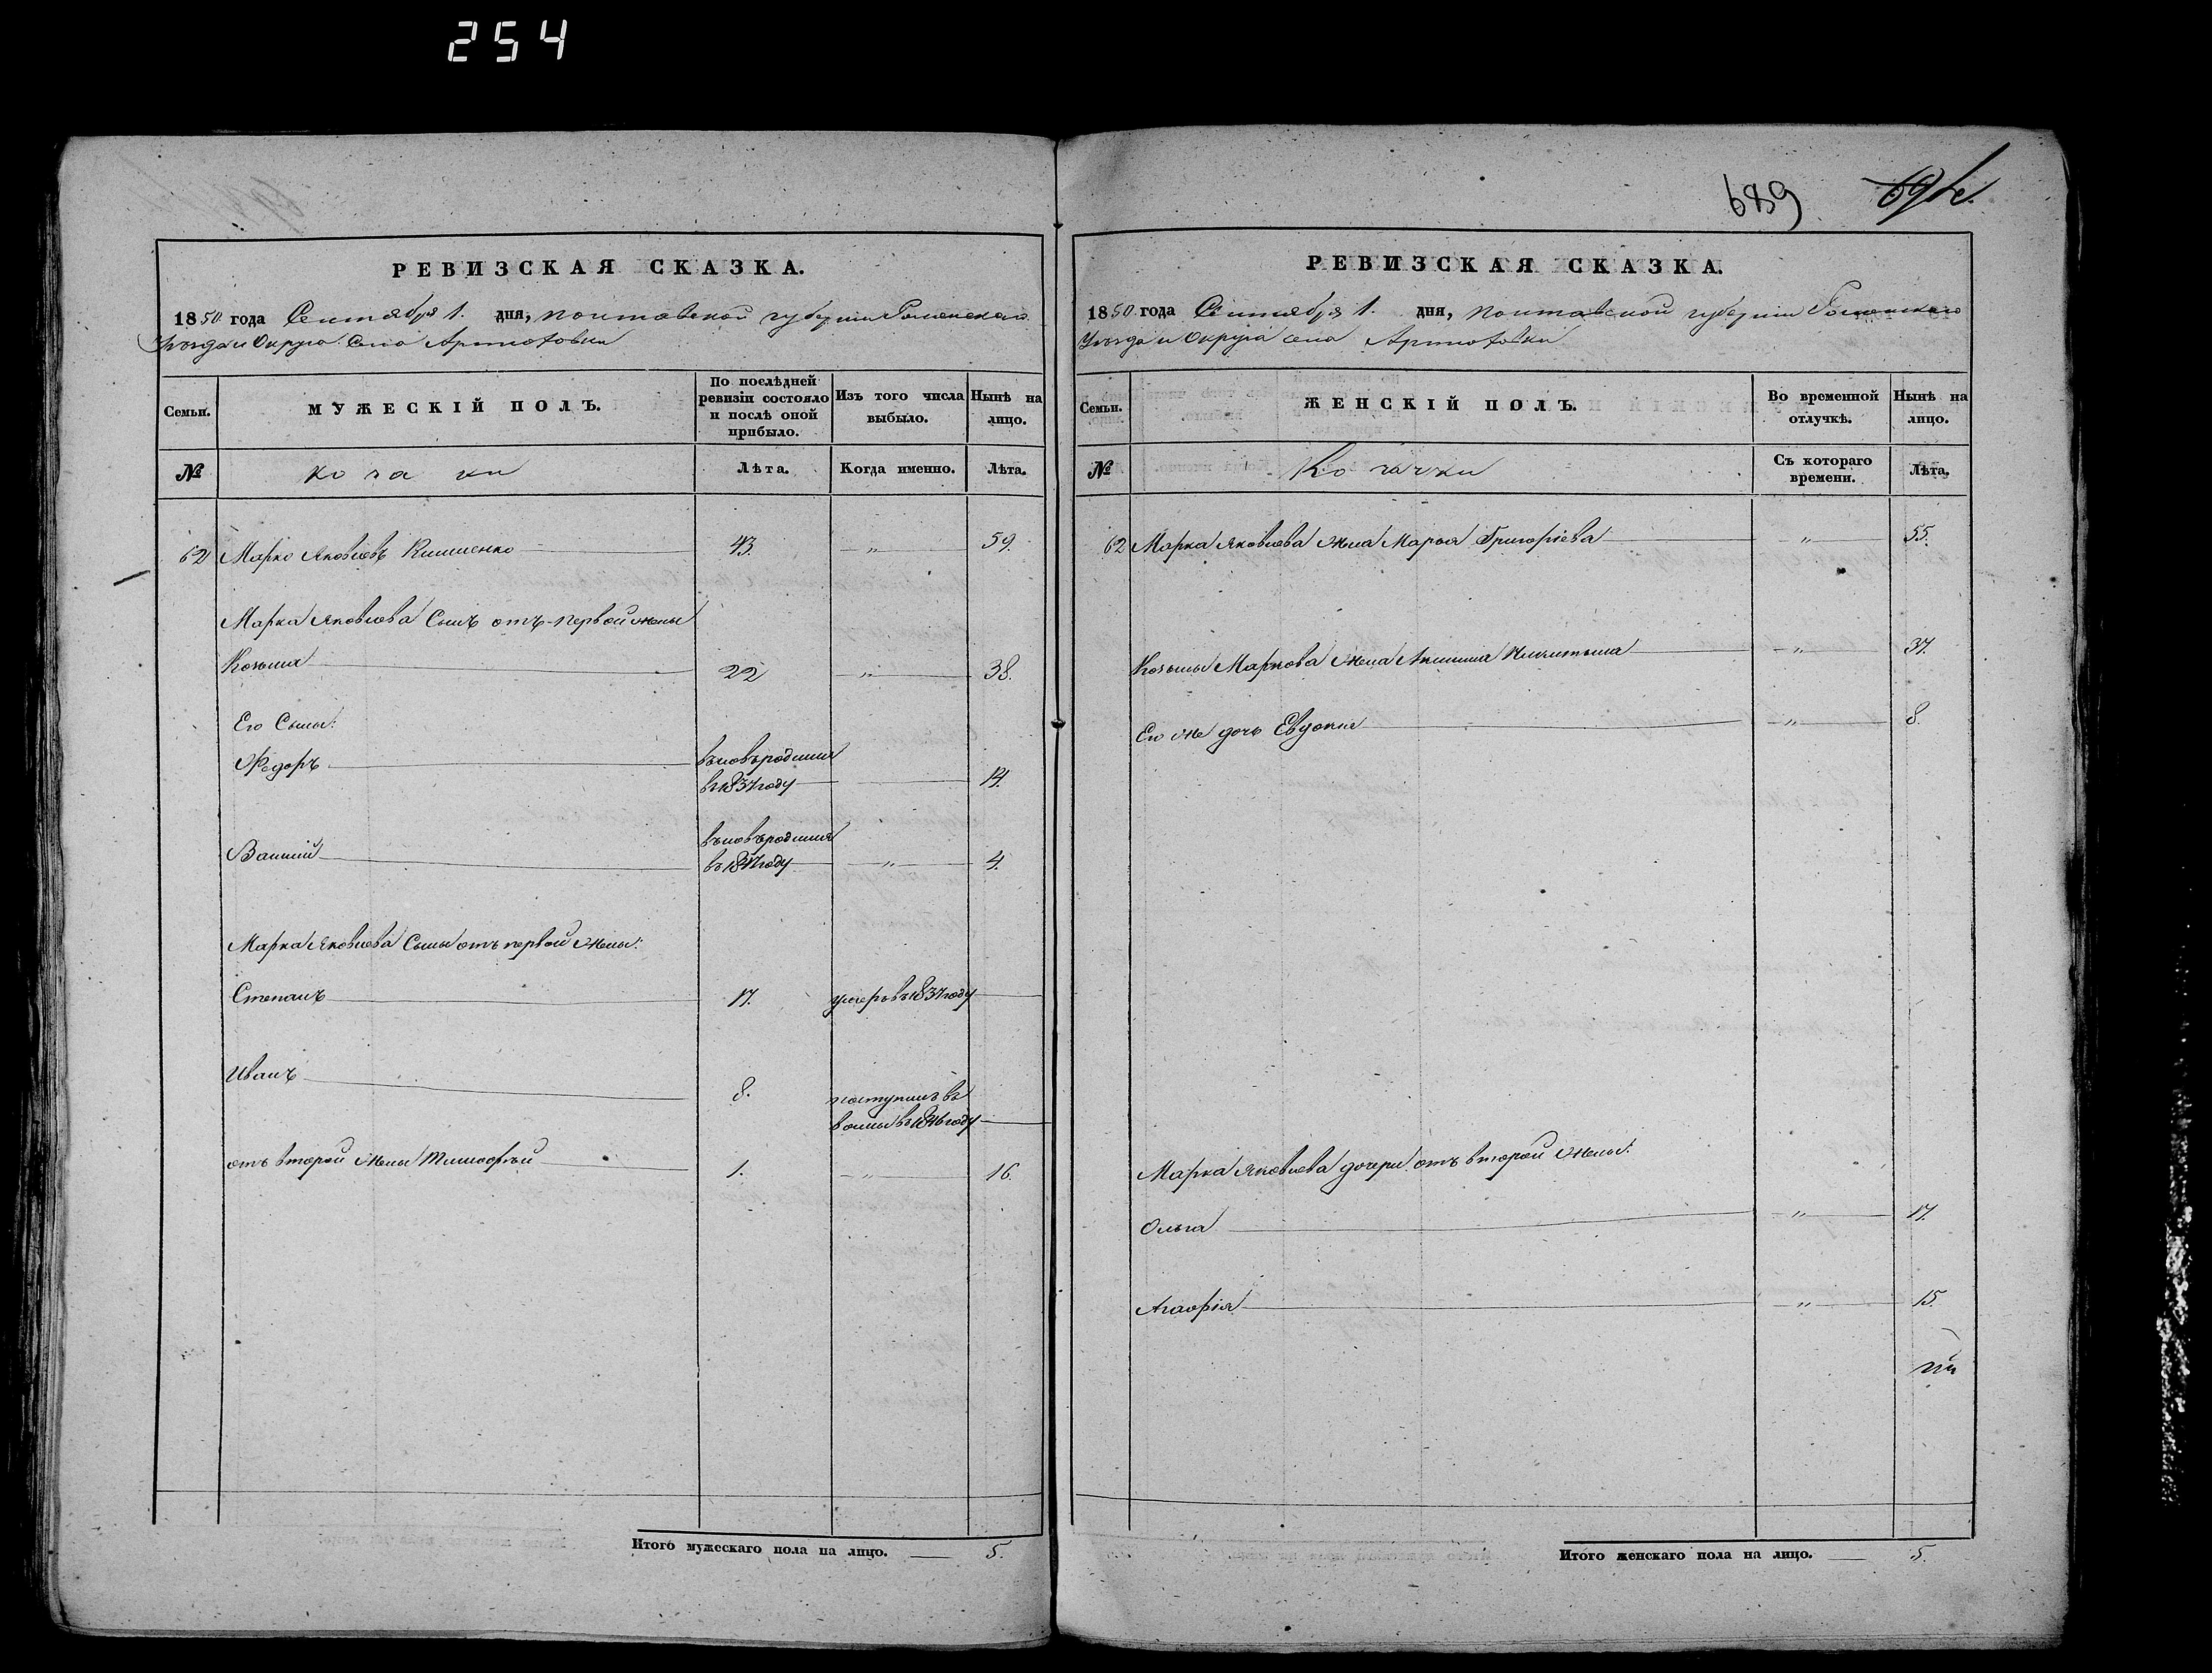 254
689
РЕВИЗСКАЯ СКАЗКА.
1850 года Сентября 1. дня, Полтавской губернии Роменского
Уезда и Округа Села Артюховки
Семьи.
МУЖЕСКІЙ ПОЛЪ.
По послѣдней ревизіи состояло и послѣ оной прибыло.
Изъ того числа выбыло.
Нынѣ на лицо.
№
Козаки
Лѣта.
Когда именно.
Лѣта.
62 Марко Яковлевъ 43. — „ — 59.
Марка Яковлева Сынъ отъ первой жены
Козьма 22 — „ — 38.
Его Сыны:
Федоръ вновьродился
въ 1837 году 14.
Василий вновьродился
въ 1847 году — „ — 4.
Марка Яковлева Сыны отъ первой жены:
Степанъ 17. умеръ въ 1837 году
Иванъ 8. поступилъ въ
въ 1846 году
отъ второй жены Тимофѣй 1. — „ — 16.
Итого мужескаго пола на лицо. — 5.
РЕВИЗСКАЯ СКАЗКА.
1850 года Сентября 1. дня, Полтавской губернии Роменского
Уезда и Округа села Артюховки
Семьи.
ЖЕНСКІЙ ПОЛЪ.
Во временной отлучкѣ.
Нынѣ на лицо.
№
Козачки
Съ котораго времени.
Лѣта.
62 Марка Яковлева жена Марья Григоріева — „ — 55.
Козьмы Маркова жена Акилина Никитина — „ — 37.
Его же дочь Евдокия — „ — 8.
Марка Яковлева дочери отъ второй жены:
Ольга — „ — 17.
Агафія — „ — 15.
Итого женскаго пола на лицо. — 5.